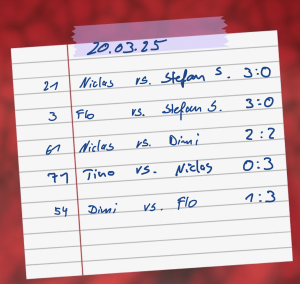 20.03.25
21 Niclas vs. Stefan S. 3:0
3 Flo vs. Stefan S. 3:0
61 Niclas vs. Dimi 2:2
71 Tino vs. Niclas 0:3
54 Dimi vs. Flo 1:3